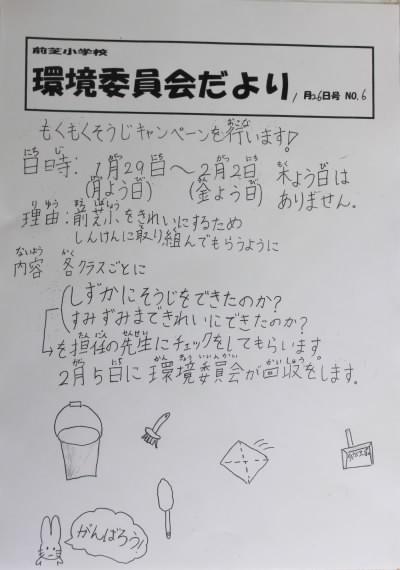 前芝小学校
環境委員会だより 1月26日号 NO.6
もくもくそうじキャンペーンを行います!
日時:1月29日~2月2日 木よう日は
(月よう日) (金よう日) ありません。
理由:前芝小をきれいにするため
しんけんに取り組んでもらうように
内容 各クラスごとに
しずかにそうじをできたのか?
すみずみまできれいにできたのか?
を担任の先生にチェックをしてもらいます。
2月5日に環境委員会が回収をします。
がんばろう!